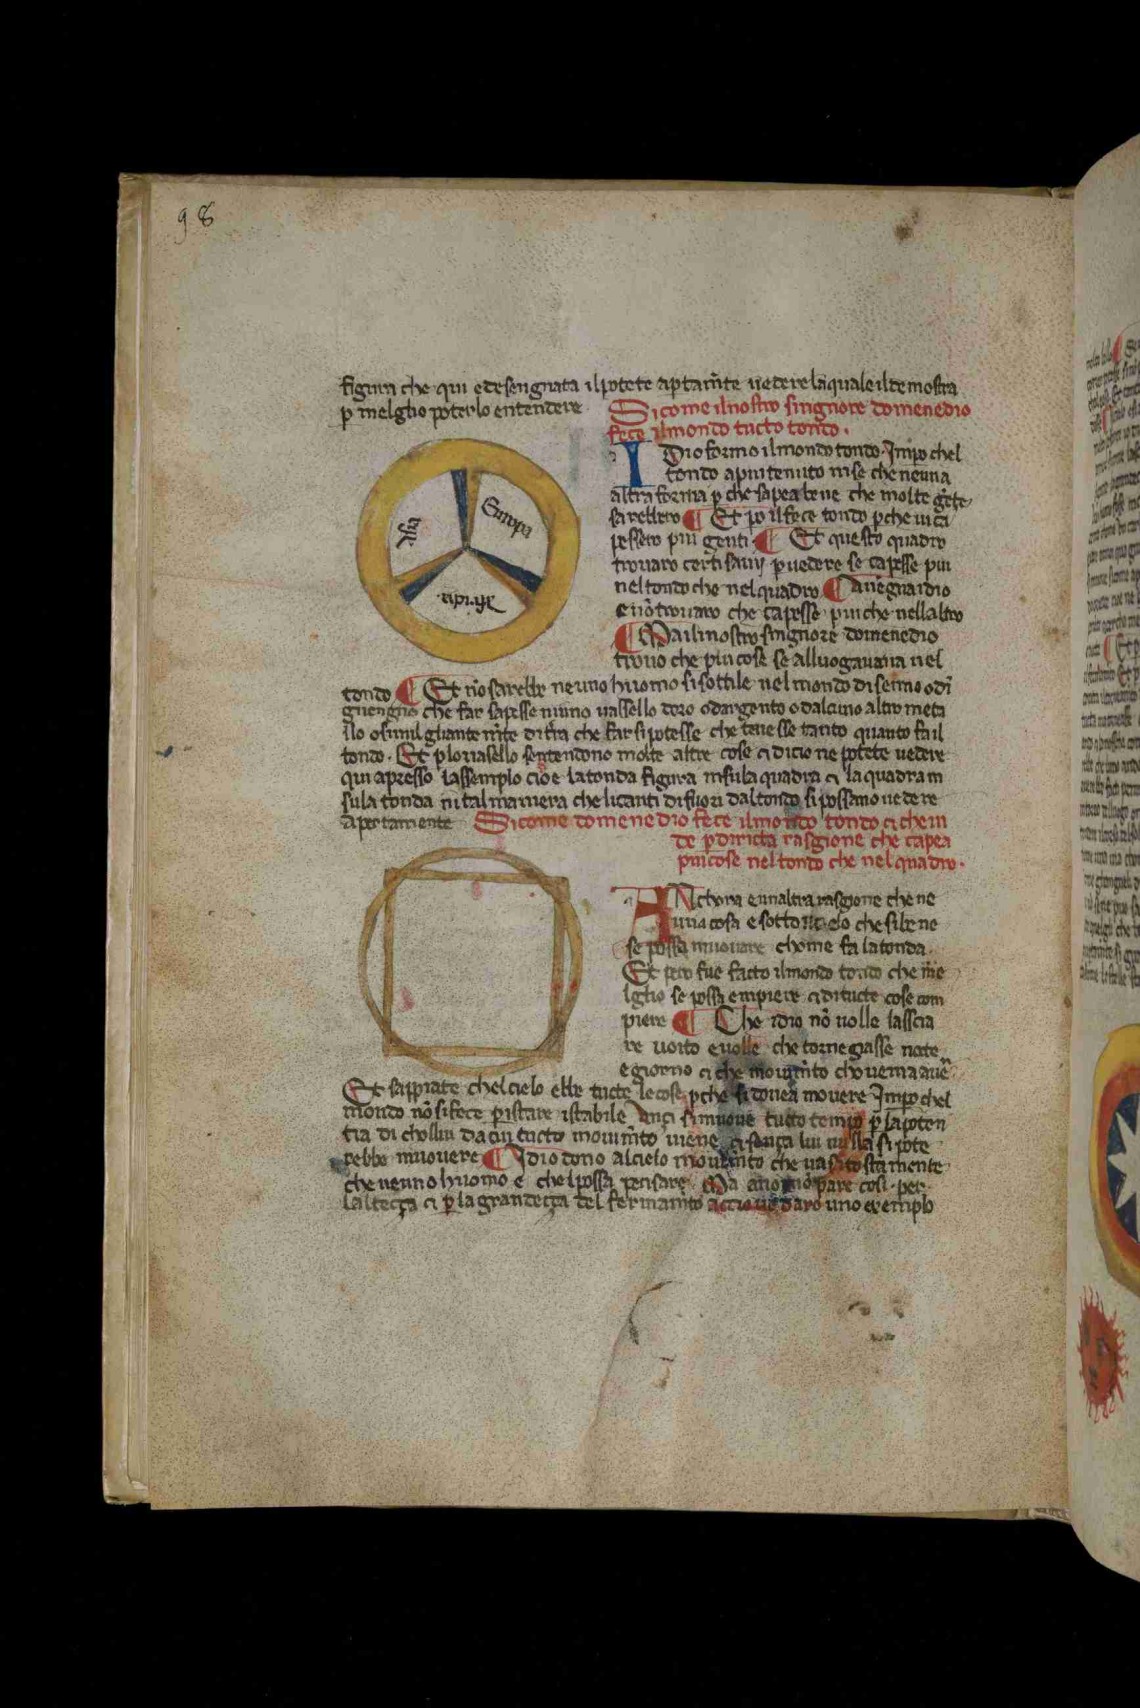 98
figura che qui edesengnata ilpotete aptam̃te uedere laquale il demostra
ꝑ melglio poterlo entendere
Sicome ilnostro singnore domenedio
fece ilmondo tucto tondo.
Asia
Europa
Africa.
IDio formo ilmondo tondo. Impo chel
tondo apiu tenuto in se che neuna
altra forma ꝑ che sapea bene che molte gẽte
sarebbero ¶ Et po il fece tondo ꝑche ui ca
pessero piu genti ¶ Et questo quadro
trouaro certi sauij ꝑ uedere se capesse piu
nel tondo che nel quadro ¶
e nõ trouaro che capesse piu che nellaltro
¶ Ma ilnostro singnore domenedio
trouo che piu cose se alluogauana nel
tondo ¶ Et nõ sarebbe neuno huomo si sottile nel mondo di senno odĩ
guengno che far sapesse niuno uassello doro odargento o dalcuno altro meta
llo o simil gliante m̃te di tr̃a che far si potesse che tenesse tanto quanto fa il
tondo. Et ꝑ lo uasello sentendono molte altre cose ci dicio ne potete uedere
qui apresso lassemplo cioe la tonda figura insula quadra ci la quadra in
sula tonda in tal maniera che li canti di fuori dal tondo si possano uedere
apertamente
Sicome domenedio fece ilmondo tondo ci che in
de ꝑ diricta rasgione che capea
piu cose nel tondo che nel quadro.
ANchora e unaltra rasgione che ne
una cosa e sotto il cielo che si bene
se possa muouare chome fa la tonda.
Et pero fue facto ilmondo tondo che me
lglio se possa empiere ci di tucte cose com
piere ¶ Che idio nõ uolle lasscia
re uoito e uolle che tornegiasse nocte
e giorno ci che mouim̃to chouenia
Et sappiate chel cielo ebbe tucte le cose ꝑche si douea mouere Impo chel
mondo nõ si fece ꝑ istare istabile Ançi si muoue tucto tempo ꝑ la poten
tia di cholui da cui tucto mouim̃to uiene ci sença lui nulla si pote
rebbe muouere ¶ Idio dono al cielo mouim̃to che ua si tostamente
che neuno huomo e chel possa pensare. Ma anoi nõ pare cosi per
lalteçça ci ꝑ la grandeçça del fermamto accio ue daro uno exemplo